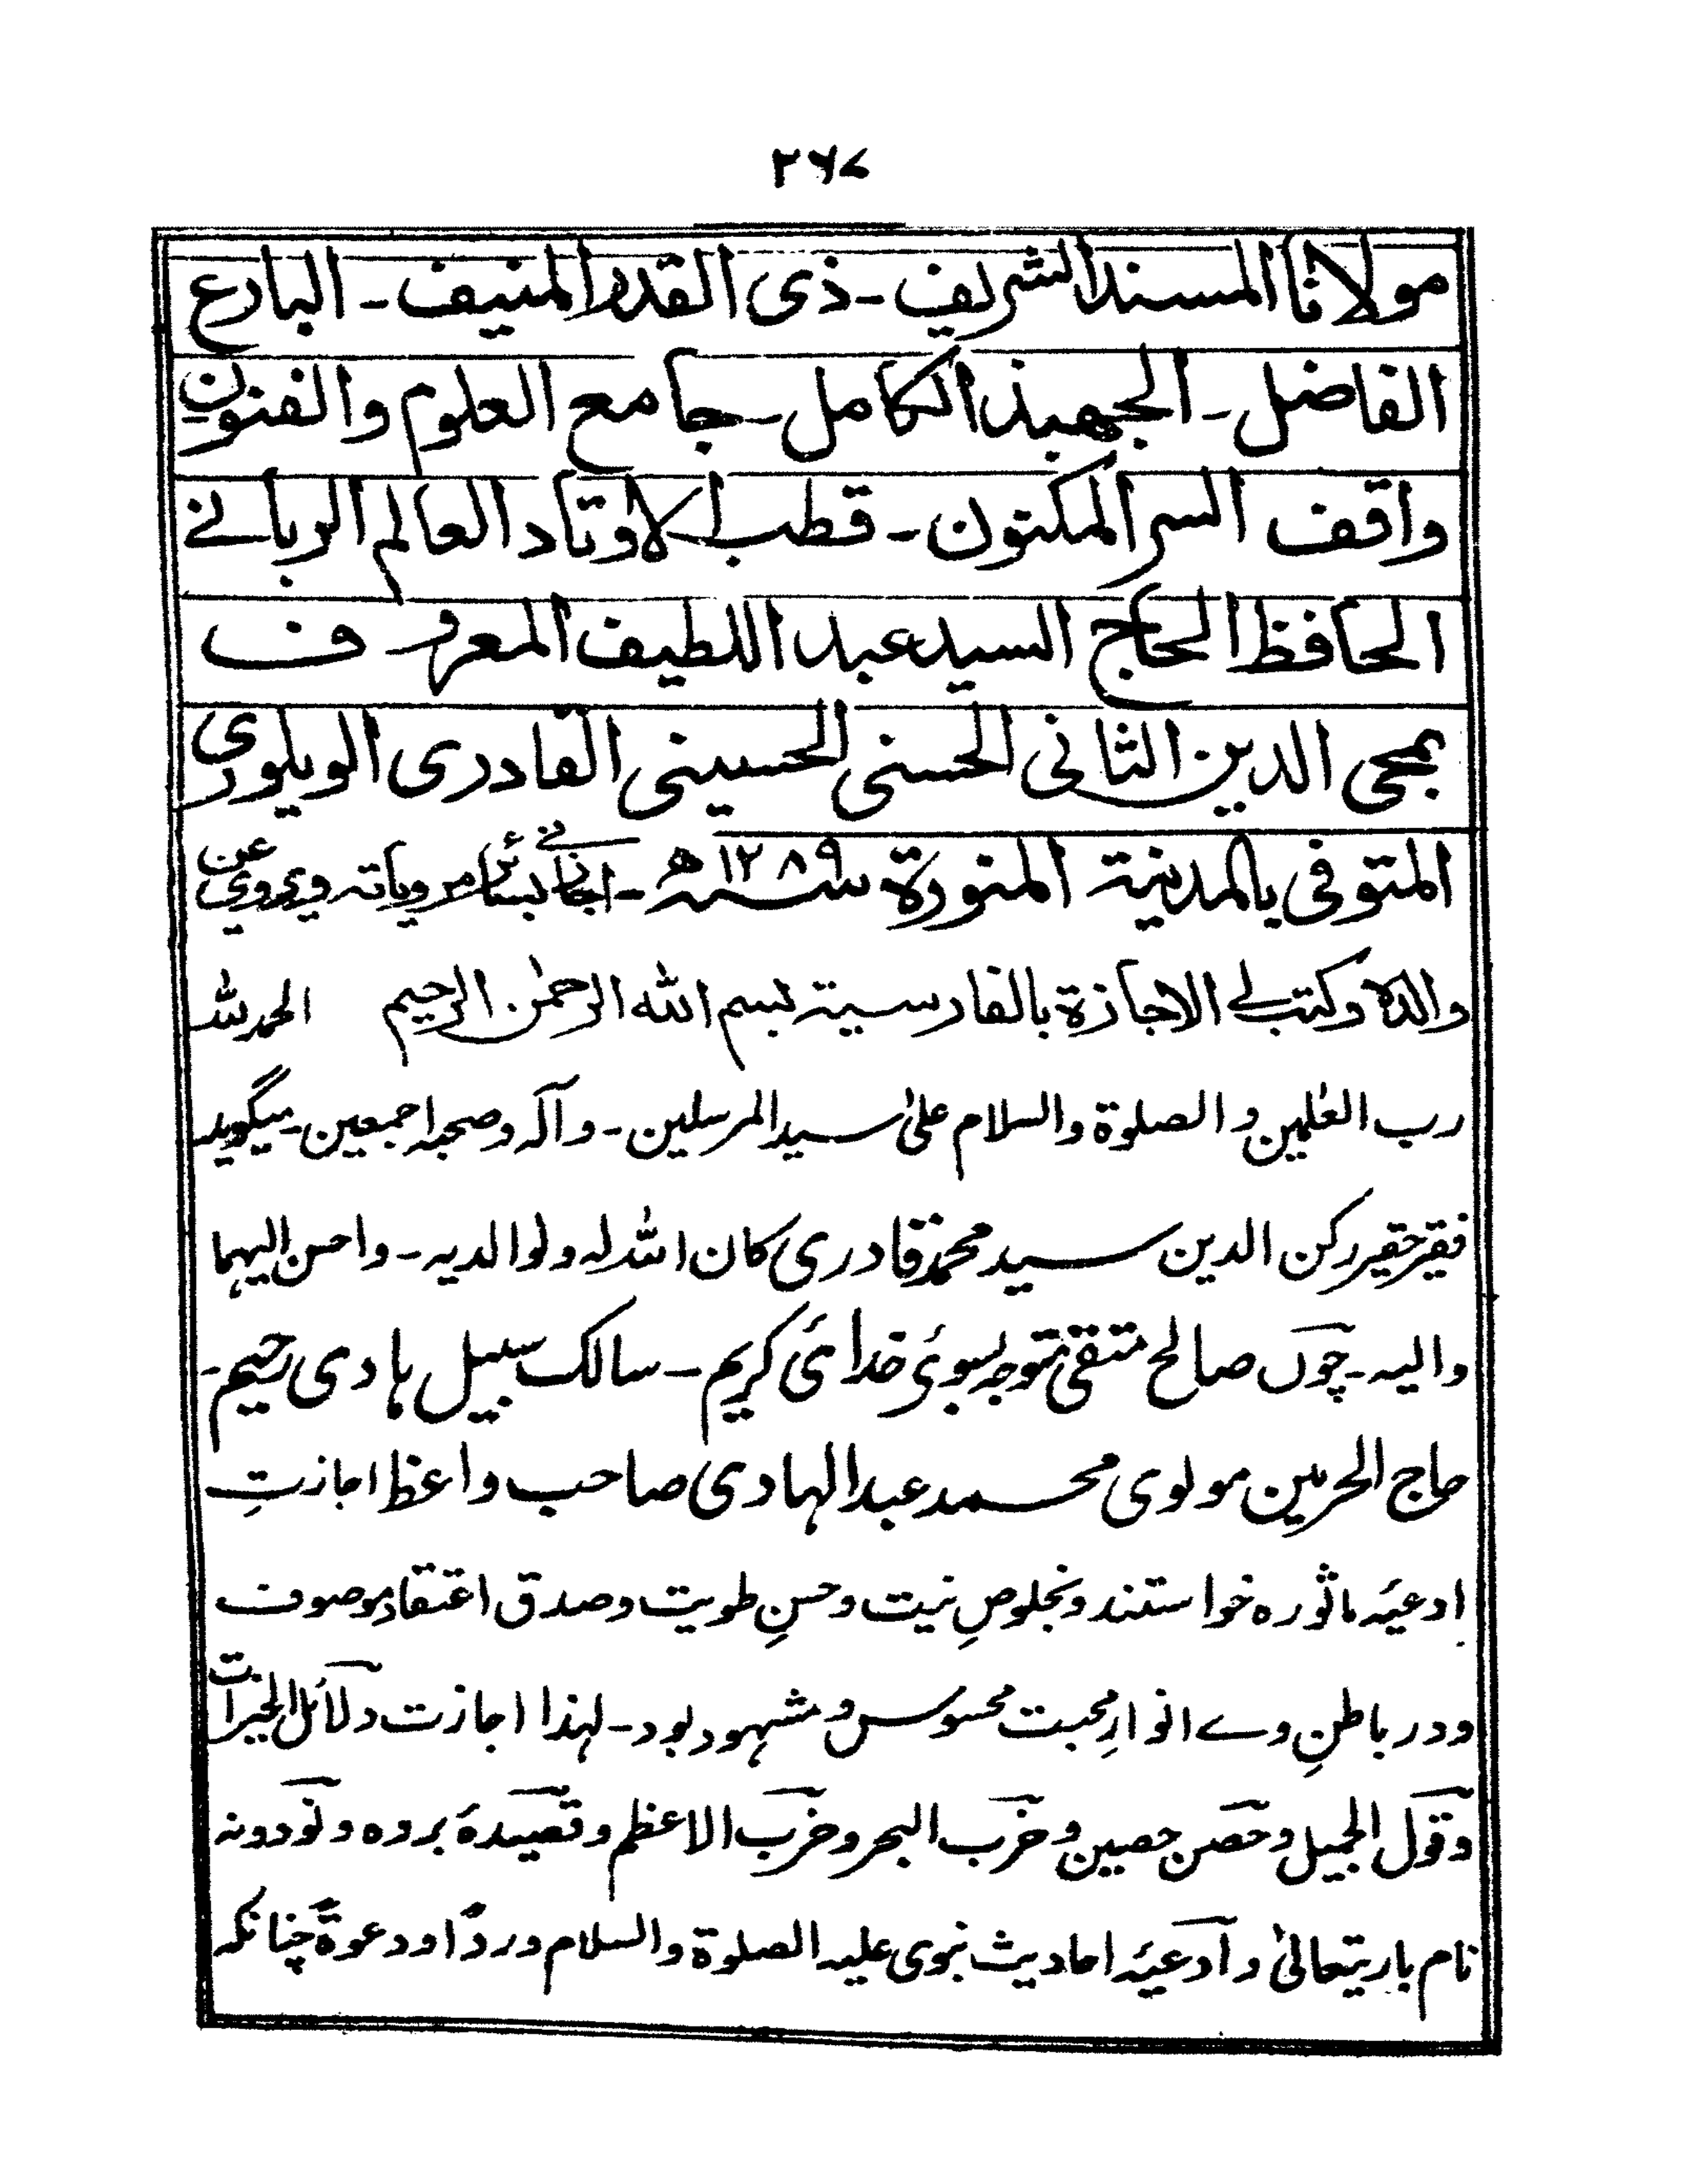 ۲۶۷
مولانا المسند الشریف ـ ذی القدر المنیف ـ البارع
الفاضل ـ الجهبذ الکامل ـ جامع العلوم والفنون ـ
واقف السر المکنون ـ قطب الاوتاد العالم الربانے
الحافظ الحاج السید عبد اللطیف المعروف
بمحی الدین الثانی الحسنی الحسینی القادری الویلوری
المتوفی بالمدینة المنورة سنه ۱۲۸۹ ه ـ اجازنے بسائر مرویاته ویروی عن
والده وکتب لے الاجازة بالفارسیة بسم الله الرحمٰن الرحیم الحمد لله
رب العٰلمین و الصلوة والسلام علیٰ سید المرسلین ـ وآله وصحبه اجمعین ـ میگوید
فقیر حقیر رکن الدین سید محمد قادری کان الله له ولوالدیه ـ واحسن الیهما
والیه ـ چوں صالح متقی متوجہ بسوئ خدائ کریم ـ سالک سبیل ہادی رحیم ـ
حاج الحرمین مولوی محمد عبدالہادی صاحب واعظ اجازتِ
ادعیۂ ماثوره خواستند و بخلوصِ نیت وحسنِ طویت وصدق اعتقاد موصوف
ودر باطنِ وے انوارِ محبت محسوس و مشہود بود ـ لہذا اجازت دلائل الخیرات
وقول الجمیل وحصن حصین و حزب البحر وحزب الاعظم وقصیدۂ بردہ ونودونہ
نام باریتعالیٰ وادعیۂ احادیث نبوی علیہ الصلوة والسلام وردًا ودعوةً چنانکہ